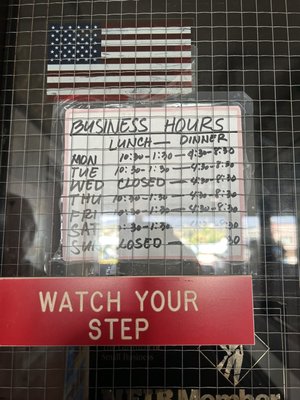 BUSINESS HOURS
LUNCH — DINNER
MON 10:30-1:30 — 4:30-8:30
TUE 10:30-1:30 — 4:30-8:30
WED CLOSED — 4:30-8:30
THU 10:30-1:30 — 4:30-8:30
FRI 10:30-1:30 — 4:30-8:30
SAT
SUN CLOSED —
WATCH YOUR
STEP
Small Business
Member